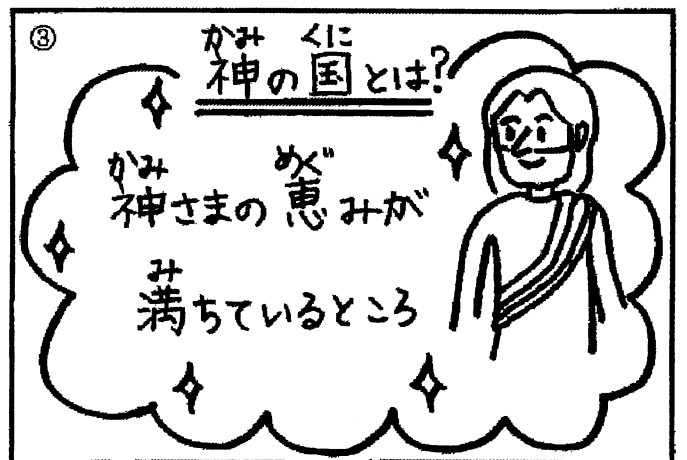 ③
かみ くに
神の国とは?
かみ めぐ
神さまの恵みが
み
満ちているところ